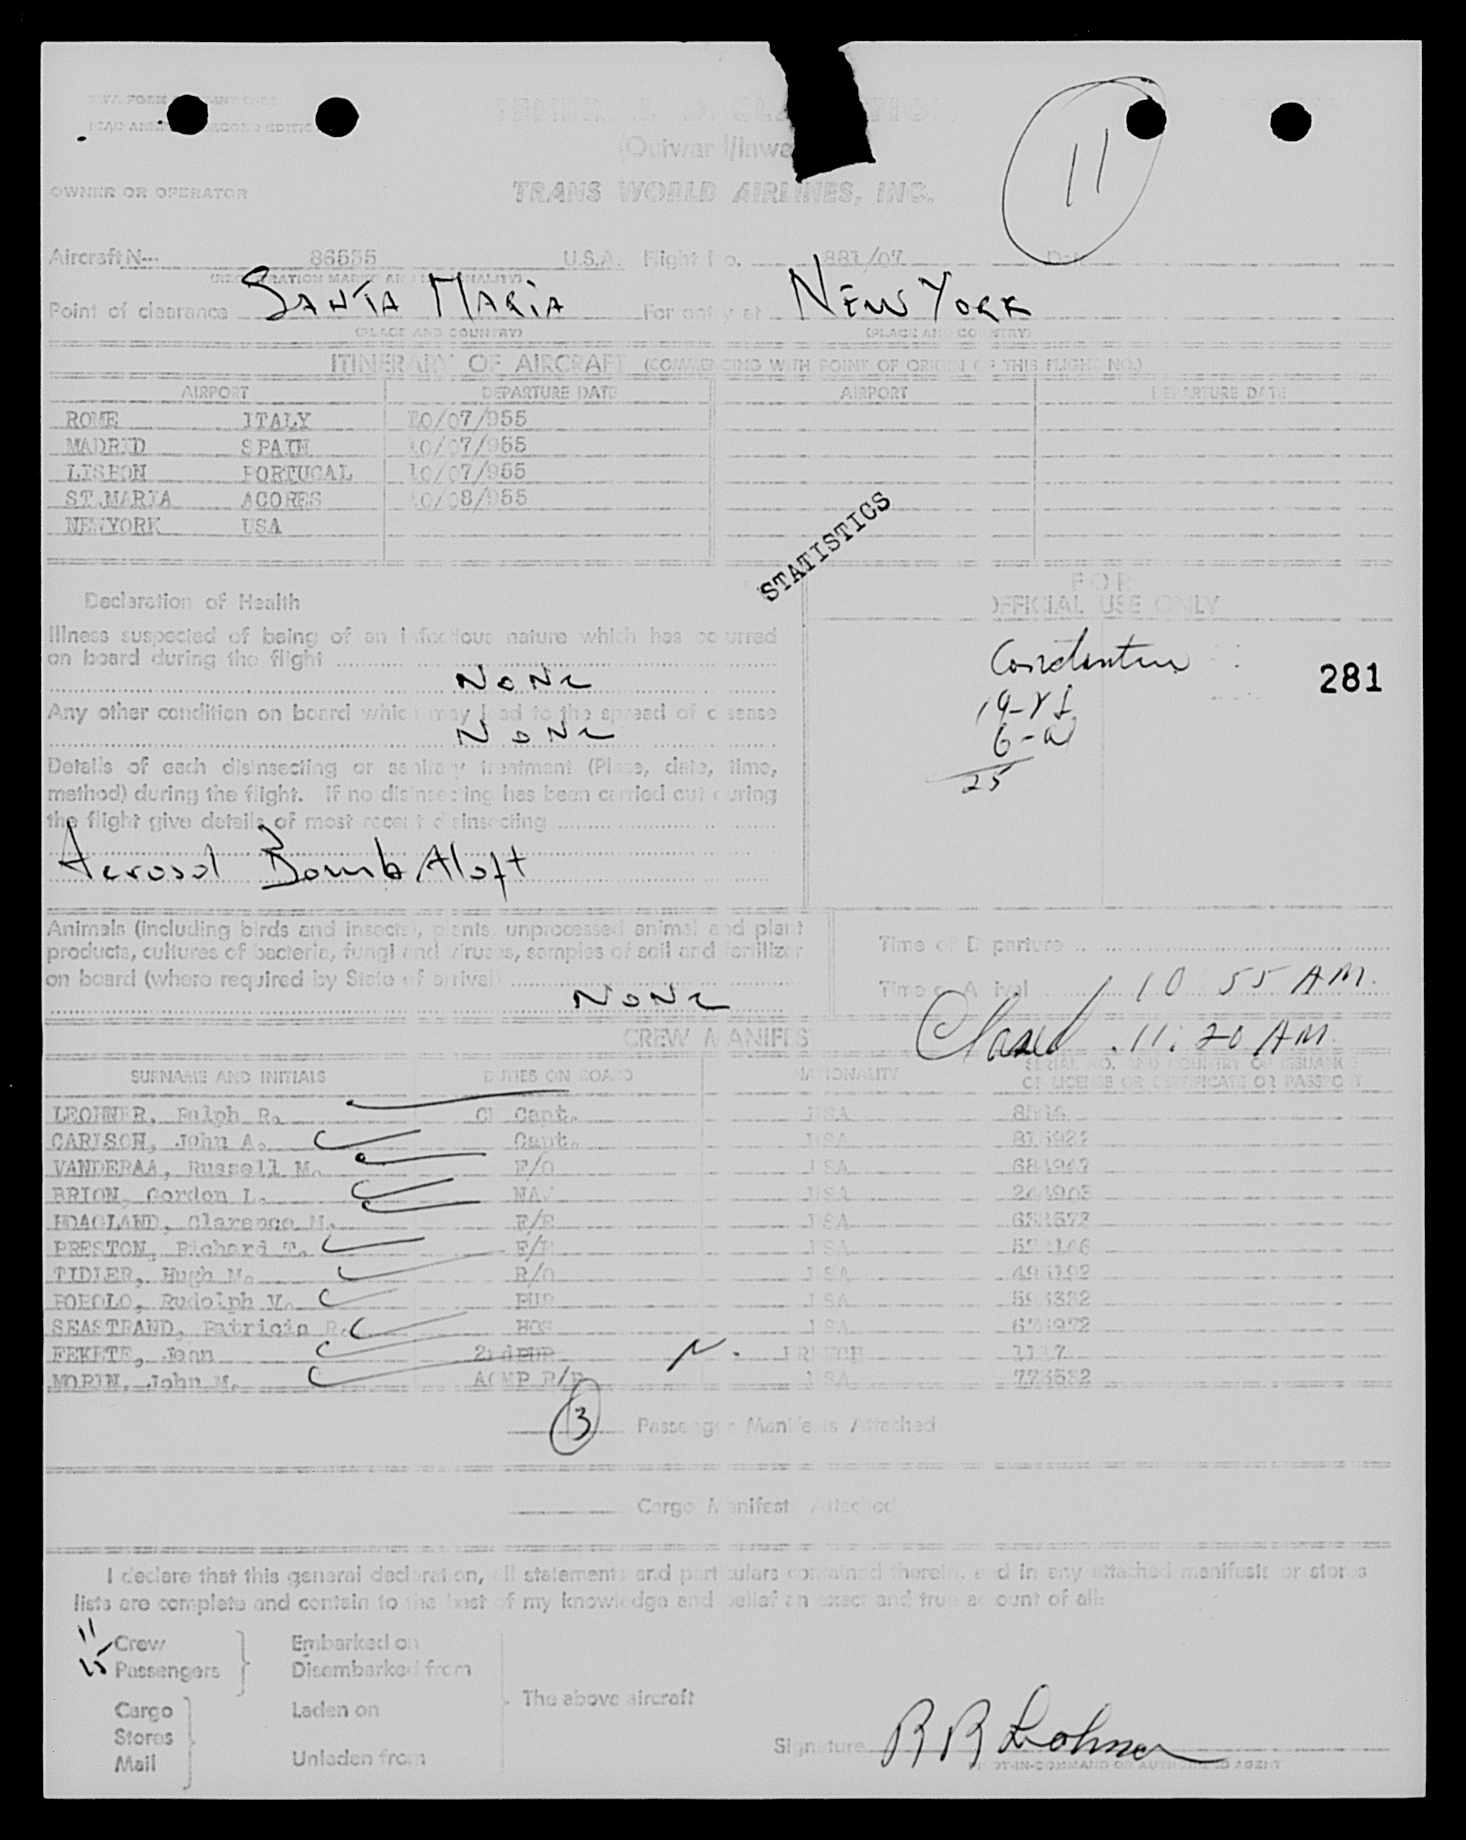 (Outward/Inward)
OWNER OR OPERATOR TRANS WORLD AIRLINES, INC.
11
Aircraft N-- 86555 U.S.A. Flight No. 881/07
Point of clearance SANTA MARIA For entry at NEW YORK
(PLACE AND COUNTRY) (PLACE AND COUNTRY)
ITINERARY OF AIRCRAFT (COMMENCING WITH POINT OF ORIGIN OF THIS FLIGHT NO.)
AIRPORT DEPARTURE DATE AIRPORT DEPARTURE DATE
ROME ITALY 10/07/955
MADRID SPAIN 10/07/955
LISBON PORTUGAL 10/07/955
ST.MARIA ACORES 10/08/955
NEWYORK USA
STATISTICS
Declaration of Health
FOR
OFFICIAL USE ONLY
Illness suspected of being of an infectious nature which has occurred
on board during the flight
None
281
Any other condition on board which may lead to the spread of disease
None
19-
6-a
25
Details of each disinsecting or sanitary treatment (Place, date, time,
method) during the flight. If no disinsecting has been carried out during
the flight give details of most recent disinsecting
Aerosol Bomb Aloft
Animals (including birds and insects), plants, unprocessed animal and plant
products, cultures of bacteria, fungi and viruses, samples of soil and fertilizer
on board (where required by State of arrival)
None
Time of Departure
Time of Arrival 10 55 AM.
Closed 11:20 AM
CREW MANIFES
SURNAME AND INITIALS DUTIES ON BOARD NATIONALITY SERIAL NO. AND COUNTRY OF ISSUANCE
OF LICENSE OR CERTIFICATE OR PASSPORT
LEOHNER, Ralph R. Capt. USA
CARLSON, John A. Capt. USA
VANDERAA, Russell M. F/O USA
BRION, Gordon L. NAV USA
HOAGLAND, Clarence M. F/E USA
PRESTON, Richard T. F/E USA
TIDLER, Hugh M. R/O USA
POPOLO, Rudolph V. PUR USA
SEASTRAND, Patricia R. HOS USA
FEKETE, Jean 2nd PUR FRENCH
MORIN, John M. USA
3 Passenger Manifests Attached
Cargo Manifests Attached
I declare that this general declaration, all statements and particulars contained therein, and in any attached manifests or stores
lists are complete and contain to the best of my knowledge and belief an exact and true account of all:
11 Crew Embarked on
15 Passengers Disembarked from
The above aircraft
Cargo Laden on
Stores
Mail Unladen from
Signature R R Lohner
PILOT-IN-COMMAND OR AUTHORIZED AGENT